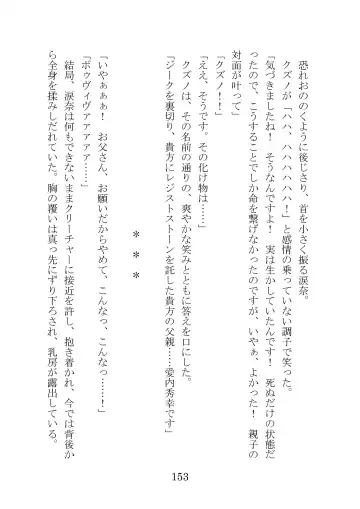 恐れおののくように後じさり、首を小さく振る涙奈。
クズノが「ハハ、ハハハハハ！」と感情の乗っていない調子で笑った。
「気づきましたね！　そうなんですよ！　実は生かしていたんです！　死ぬだけの状態だ
ったので、こうすることでしか命を繋げなかったのですが、いやぁ、よかった！　親子の
対面が叶って」
「クズノ！！」
「ええ、そうです。その化け物は……」
クズノは、その名前の通りの、爽やかな笑みとともに答えを口にした。
「ジークを裏切り、貴方にレジストストーンを託した貴方の父親……愛内秀幸です」
＊　＊　＊
「いやぁぁぁ！　お父さん、お願いだからやめて、こんなっ、こんなっ……！」
「ボゥヴィヴァアァァァ……」
結局、涙奈は何もできないままクリーチャーに接近を許し、抱き着かれ、今では背後か
ら全身を揉みしだれていた。胸の覆いは真っ先にずり下ろされ、乳房が露出している。
153